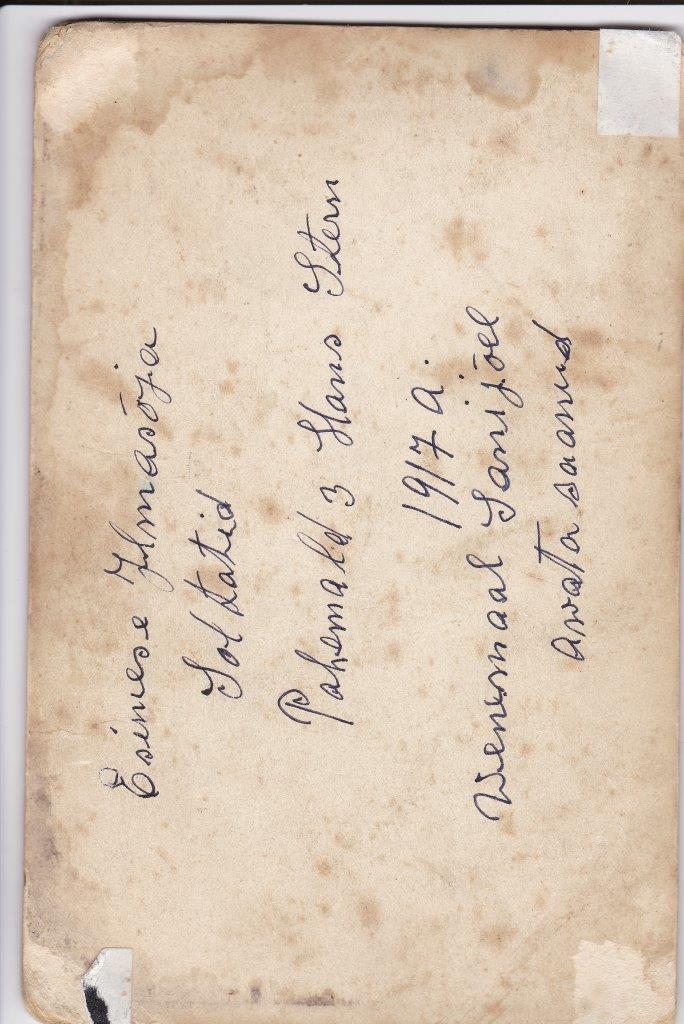 Esimese Ilmasõja
Soltatid
Pahemald 3 Hans Stern
1917 a.
Wenemaal Sarijõel
awata saanud